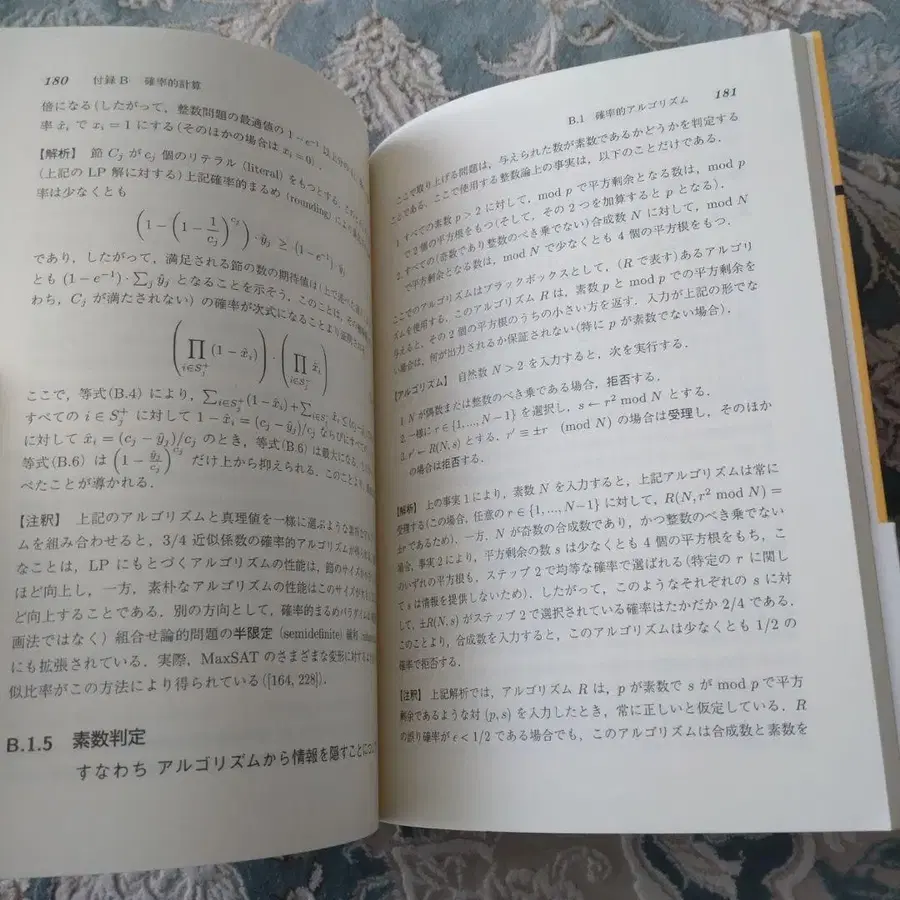 180 付録 B 確率的計算
倍になる(したがって,整数問題の最適値の 1 − e⁻¹
率 x̂ᵢ で xᵢ = 1 にする(そのほかの場合は xᵢ = 0).
【解析】 節 Cⱼ が cⱼ 個のリテラル (literal) をもつとする.
(上記の LP 解に対する)上記確率的まるめ (rounding) により
率は少なくとも
(1 − (1 − 1/cⱼ)^cⱼ) · ŷⱼ ≥ (1 − e⁻¹) · ŷⱼ
であり,したがって,満足される節の数の期待値は(上で述べた
とも (1 − e⁻¹) · ∑ⱼ ŷⱼ となることを示そう.このことは,
わち,Cⱼ が満たされない) の確率が次式になることより
(∏_{i∈Sⱼ⁺} (1 − x̂ᵢ)) · (∏_{i∈Sⱼ⁺} x̂ᵢ)
ここで,等式(B.4) により,∑_{i∈Sⱼ⁺}(1 − x̂ᵢ) + ∑_{i∈Sⱼ} x̂ᵢ ≤
すべての i ∈ Sⱼ⁺ に対して 1 − x̂ᵢ = (cⱼ − ŷⱼ)/cⱼ ならびに
に対して x̂ᵢ = (cⱼ − ŷⱼ)/cⱼ のとき,等式(B.6) は最大になる.
等式(B.6) は (1 − ŷⱼ/cⱼ)^cⱼ だけ上から抑えられる.このことより,
べたことが導かれる.
【注釈】 上記のアルゴリズムと真理値を一様に選ぶような素朴な
ムを組み合わせると,3/4 近似係数の確率的アルゴリズムが
なことは,LP にもとづくアルゴリズムの性能は,節のサイズが
ほど向上し,一方,素朴なアルゴリズムの性能はこのサイズが
ど向上することである.別の方向として,確率的まるめパラダイム
画法ではなく) 組合せ論的問題の半限定 (semidefinite) 緩和
にも拡張されている.実際,MaxSAT のさまざまな変形に対する
似比率がこの方法により得られている([164, 228]).
B.1.5 素数判定
すなわち アルゴリズムから情報を隠すことについて
B.1 確率的アルゴリズム 181
ここで取り上げる問題は,与えられた数が素数であるかどうかを判定する
ことである.ここで使用する整数論上の事実は,以下のことだけである.
1. すべての素数 p > 2 に対して,mod p で平方剰余となる数は,mod p
で 2 個の平方根をもつ(そして,その 2 つを加算すると p となる).
2. すべての(奇数であり整数のべき乗でない)合成数 N に対して,mod N
で平方剰余となる数は,mod N で少なくとも 4 個の平方根をもつ.
ここでのアルゴリズムはブラックボックスとして,(R で表す)あるアルゴリ
ズムを使用する.このアルゴリズム R は,素数 p と mod p での平方剰余を
与えると,その 2 個の平方根のうちの小さい方を返す.入力が上記の形でな
い場合は,何が出力されるか保証されない(特に p が素数でない場合).
【アルゴリズム】 自然数 N > 2 を入力すると,次を実行する.
1. N が偶数または整数のべき乗である場合,拒否する.
2. 一様に r ∈ {1, ..., N−1} を選択し,s ← r² mod N とする.
3. r′ ← R(N, s) とする.r′ ≡ ±r (mod N) の場合は受理し,そのほか
の場合は拒否する.
【解析】 上の事実 1 により,素数 N を入力すると,上記アルゴリズムは常に
受理する(この場合,任意の r ∈ {1, ..., N−1} に対して,R(N, r² mod N) =
±r であるため).一方,N が奇数の合成数であり,かつ整数のべき乗でない
場合,事実 2 により,平方剰余の数 s は少なくとも 4 個の平方根をもち,こ
のいずれの平方根も,ステップ 2 で均等な確率で選ばれる(特定の r に関し
て s は情報を提供しないため).したがって,このようなそれぞれの s に対
して,±R(N, s) がステップ 2 で選択されている確率はたかだか 2/4 である.
このことより,合成数を入力すると,このアルゴリズムは少なくとも 1/2 の
確率で拒否する.
【注釈】 上記解析では,アルゴリズム R は,p が素数で s が mod p で平方
剰余であるような対 (p, s) を入力したとき,常に正しいと仮定している.R
の誤り確率が ϵ < 1/2 である場合でも,このアルゴリズムは合成数と素数を